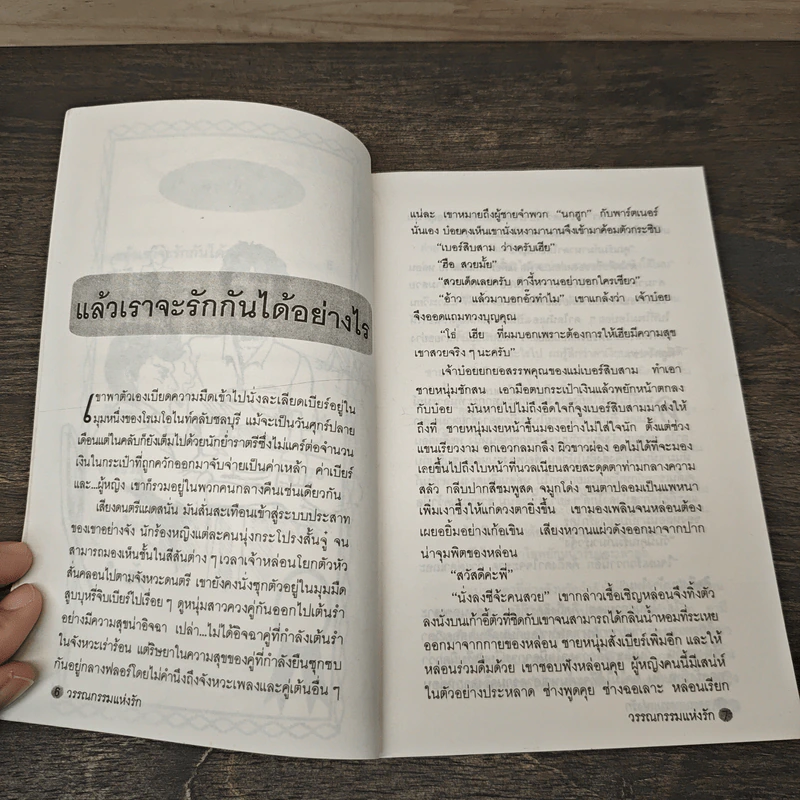 แล้วเราจะรักกันได้อย่างไร
เขาพาตัวเองเบียดความมืดเข้าไปนั่งละเลียดเบียร์อยู่ใน
มุมหนึ่งของโรมโอไนท์คลับชลบุรี แม้จะเป็นวันศุกร์ปลาย
เดือนแต่ในคลับก็ยังเต็มไปด้วยนักย่ำราตรีซึ่งไม่แคร์ต่อจำนวน
เงินในกระเป๋าที่ถูกควักออกมาจับจ่ายเป็นค่าเหล้า ค่าเบียร์
และ...ผู้หญิง เขาก็รวมอยู่ในพวกคนกลางคืนเช่นเดียวกัน
เสียงดนตรีแผดสนั่น มันสั่นสะเทือนเข้าสู่ระบบประสาท
ของเขาอย่างจัง นักร้องหญิงแต่ละคนนุ่งกระโปรงสั้นจู๋ จน
สามารถมองเห็นชั้นในสีสันต่าง ๆ เวลาเจ้าหล่อนโยกตัวหัว
สั่นคลอนไปตามจังหวะดนตรี เขายังคงนั่งซุกตัวอยู่ในมุมมืด
สูบบุหรี่จิบเบียร์ไปเรื่อย ๆ ดูหนุ่มสาวควงคู่กันออกไปเต้นรำ
อย่างมีความสุขน่าอิจฉา เปล่า...ไม่ได้อิจฉาคู่ที่กำลังเต้นรำ
ในจังหวะเร่าร้อน แต่ริษยาในความสุขของคู่ที่กำลังยืนซุกซบ
กันอยู่กลางฟลอร์โดยไม่คำนึงถึงจังหวะเพลงและคู่เต้นอื่น ๆ
6 วรรณกรรมแห่งรัก
แน่ละ เขาหมายถึงผู้ชายจำพวก “นกฮูก” กับพาร์ตเนอร์
นั่นเอง บ๋อยคงเห็นเขานั่งเหงามานานจึงเข้ามาค้อมตัวกระซิบ
“เบอร์สิบสาม ว่างครับเฮีย”
“ฮือ สวยมั้ย”
“สวยเด็ดเลยครับ ตางี้หวานอย่าบอกใครเชียว”
“อ้าว แล้วมาบอกอั๊วทำไม” เขาแกล้งว่า เจ้าบ๋อย
จึงออดแถมทวงบุญคุณ
“โธ่ เฮีย ที่ผมบอกเพราะต้องการให้เฮียมีความสุข
เขาสวยจริง ๆ นะครับ”
เจ้าบ๋อยยกยอสรรพคุณของแม่เบอร์สิบสาม ทำเอา
ชายหนุ่มชักสน เอามือตบกระเป๋าเงินแล้วพยักหน้าตกลง
กับบ๋อย มันหายไปไม่ถึงอึดใจก็จูงเบอร์สิบสามมาส่งให้
ถึงที่ ชายหนุ่มเงยหน้าขึ้นมองอย่างไม่ใส่ใจนัก ตั้งแต่ช่วง
แขนเรียวงาม อกเอวกลมกลึง ผิวขาวผ่อง อดไม่ได้ที่จะมอง
เลยขึ้นไปถึงใบหน้าที่นวลเนียนสวยสะดุดตาท่ามกลางความ
สลัว กลีบปากสีชมพูสด จมูกโด่ง ขนตาปลอมเป็นแพหนา
เพิ่มเงาซึ้งให้แก่ดวงตายิ่งขึ้น เขามองเพลินจนหล่อนต้อง
เผยอยิ้มอย่างเก้อเขิน เสียงหวานแผ่วดังออกมาจากปาก
น่าจุมพิตของหล่อน
“สวัสดีค่ะพี่”
“นั่งลงซีจ๊ะคนสวย” เขากล่าวเชื้อเชิญหล่อนจึงทิ้งตัว
ลงนั่งบนเก้าอี้ตัวที่ชิดกับเขาจนสามารถได้กลิ่นน้ำหอมที่ระเหย
ออกมาจากกายของหล่อน ชายหนุ่มสั่งเบียร์เพิ่มอีก และให้
หล่อนร่วมดื่มด้วย เขาชอบฟังหล่อนคุย ผู้หญิงคนนี้มีเสน่ห์
ในตัวอย่างประหลาด ช่างพูดคุย ช่างฉอเลาะ หล่อนเรียก
วรรณกรรมแห่งรัก 7